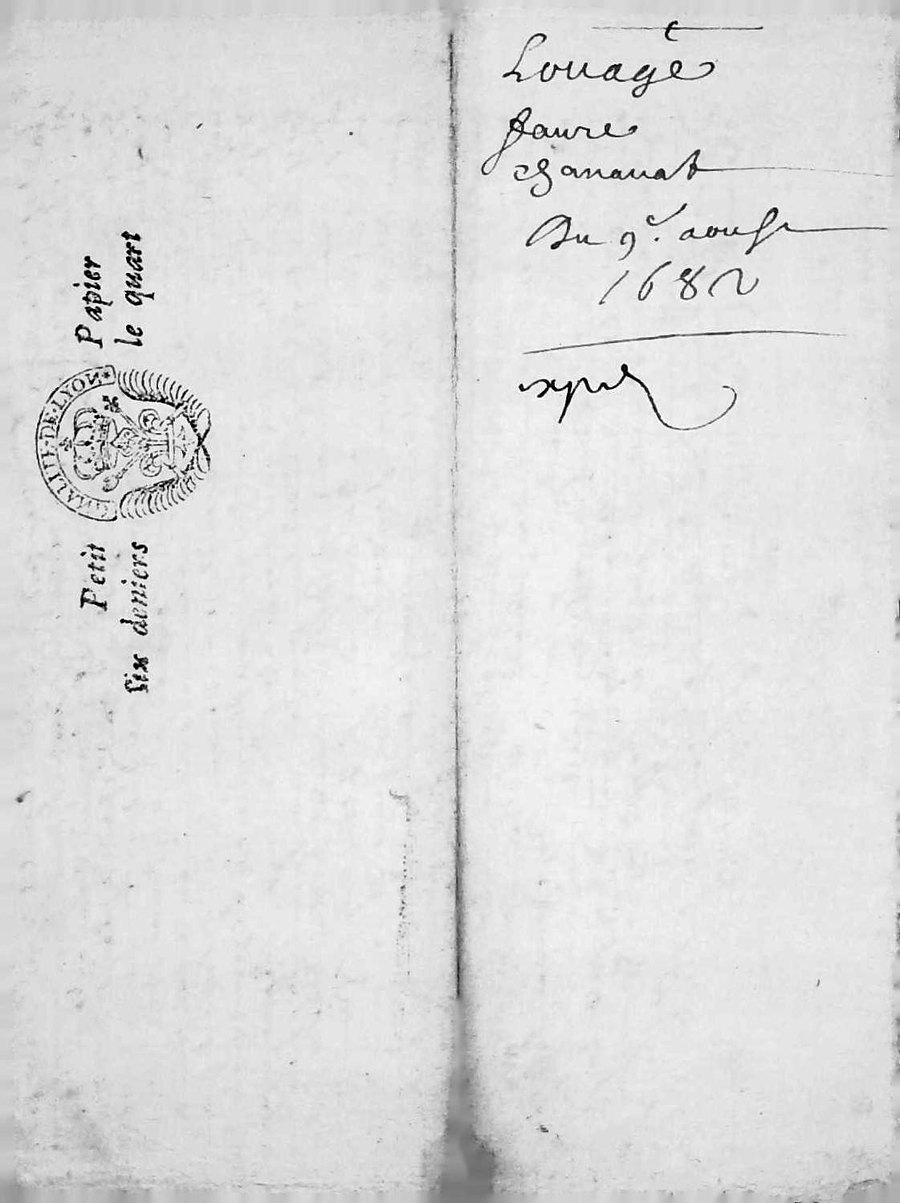 Petit Papier
six deniers le quart
GNALITE·DE·LYON
Louage
faure
chanauat
Du 9e. aoust
1682
expéd